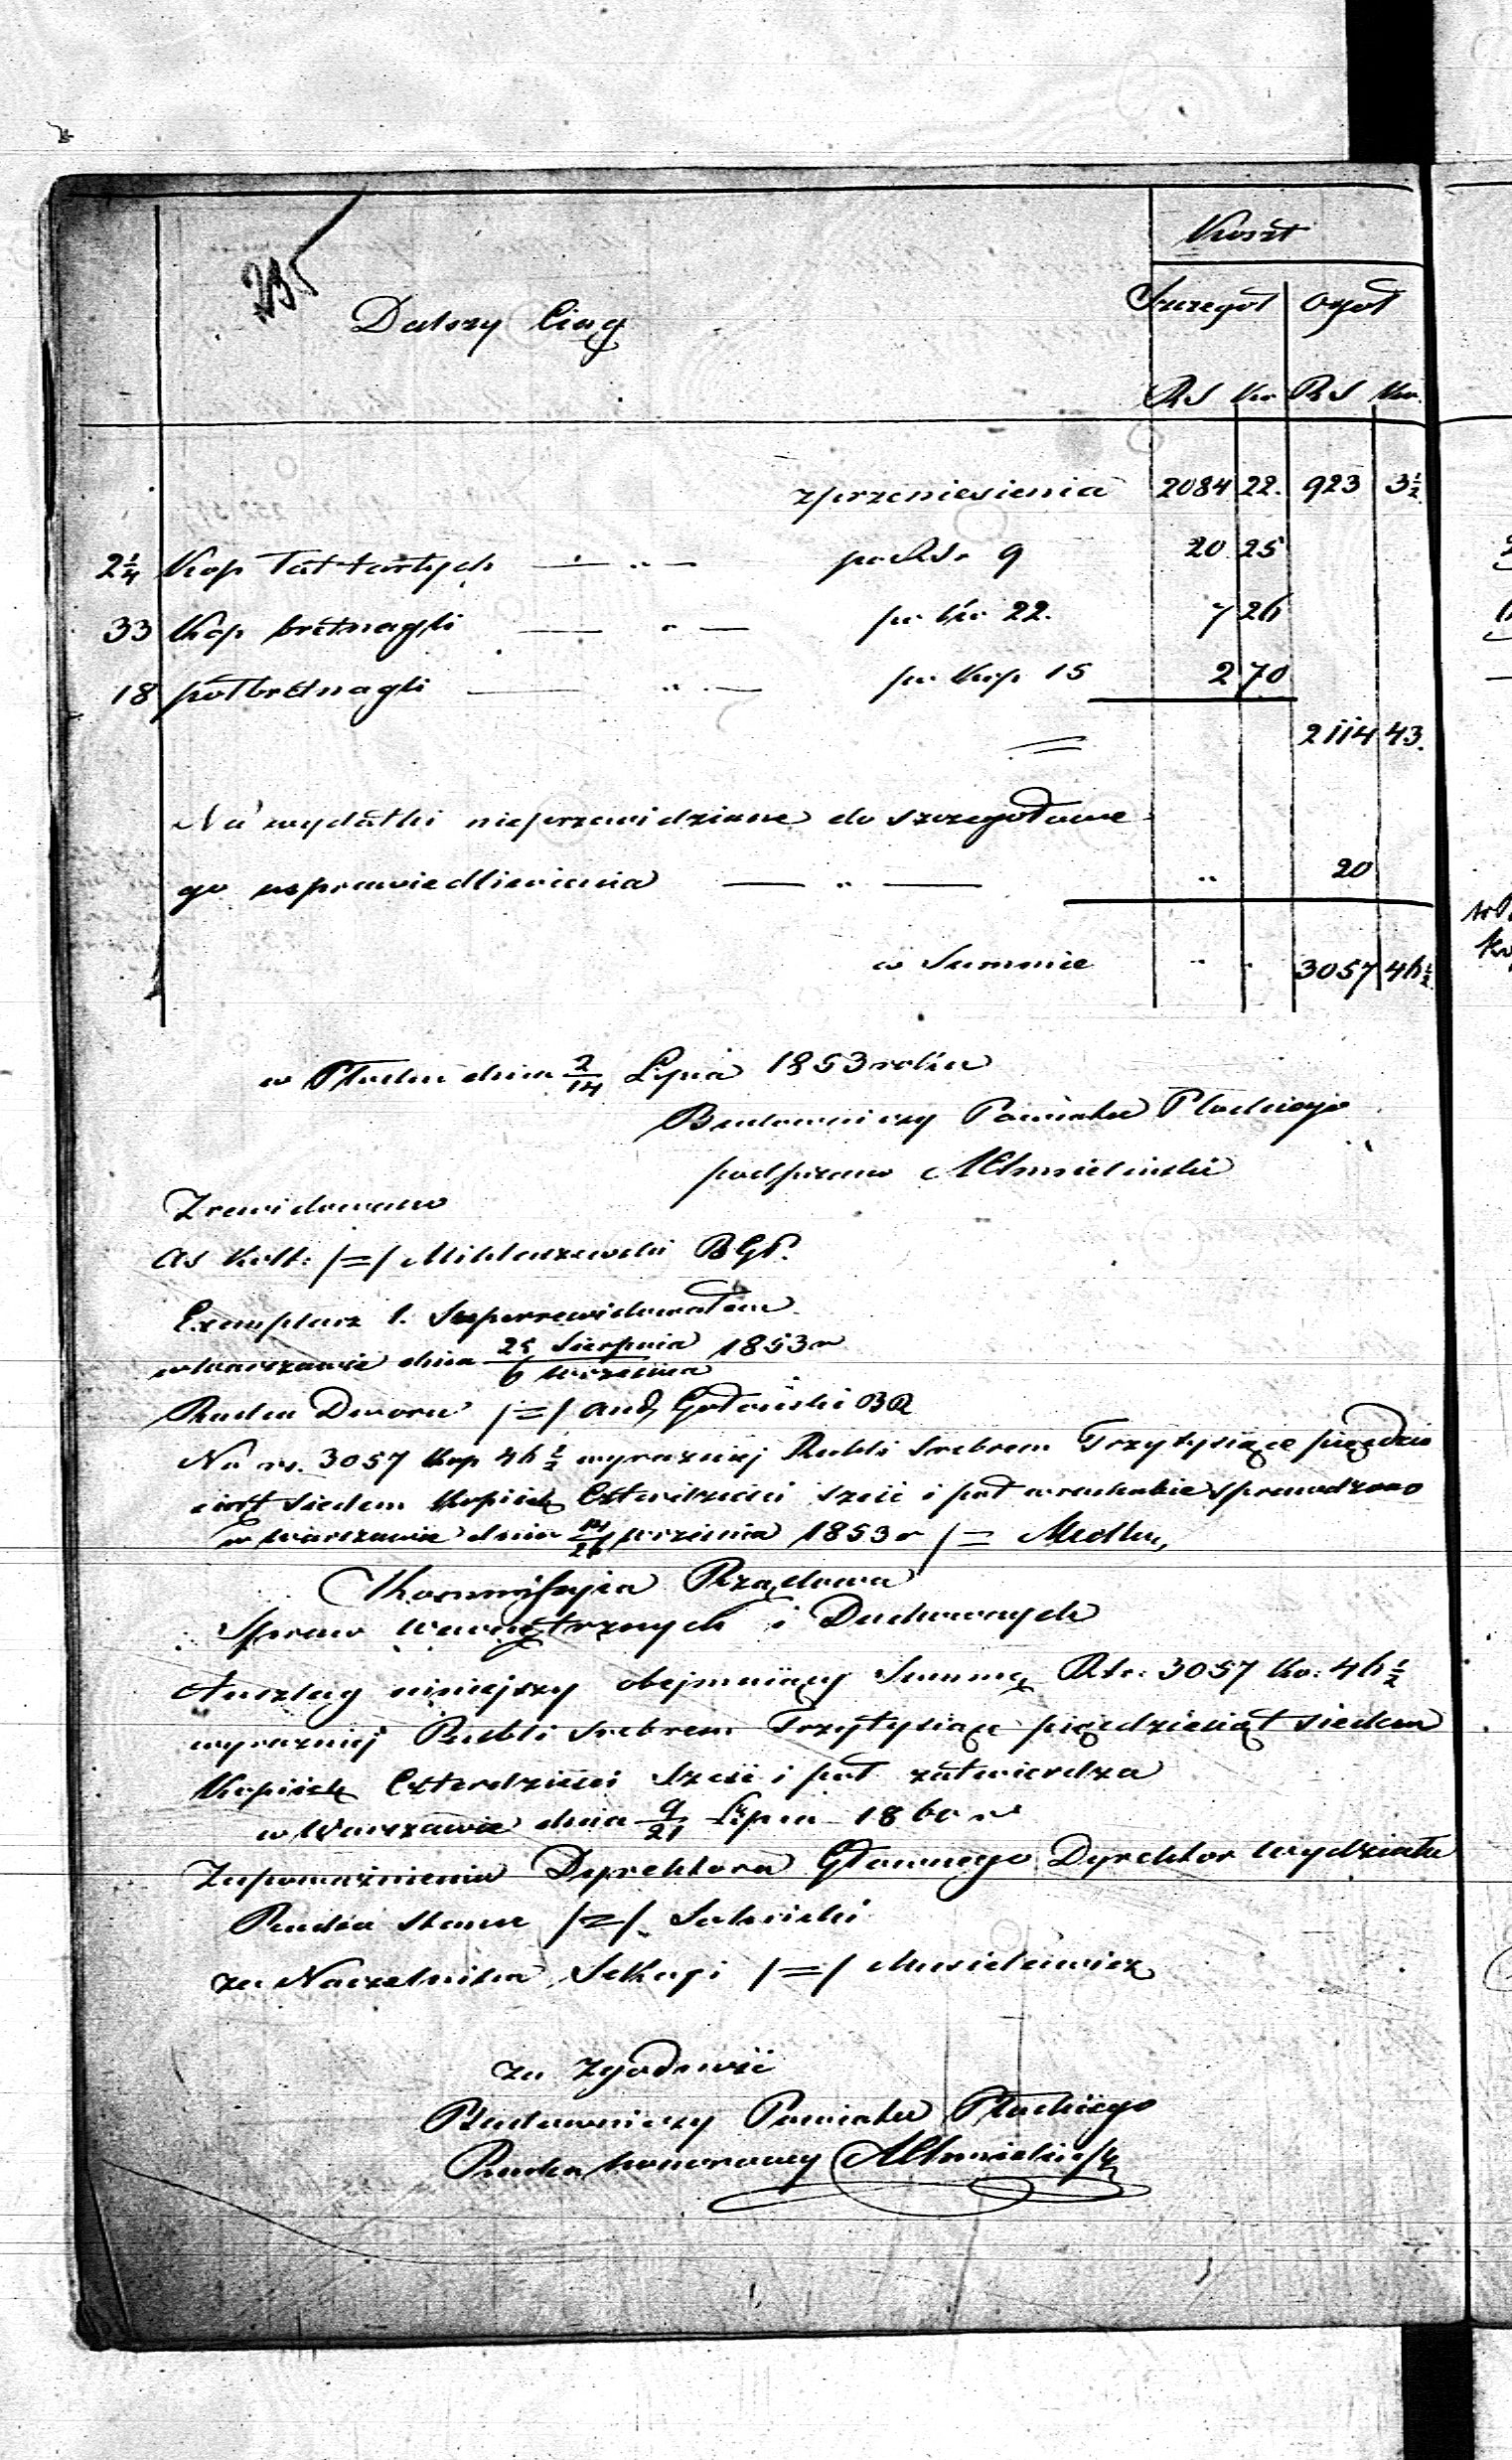 235
Koszt
Dalszy Ciąg
Szczegół Ogół
RS Ko RS Ko.
z przeniesienia 2084 22. 923 3½
2¼ Kop Łat tartych — „ — po Rs. 9 20 25
33 Kop bretnagli — „ — po ko 22. 7 26
18 półbretnagli — „ — po kop 15 2 70
2114 43.
Na wydatki nieprzewidziane do szczegółowe
go usprawiedliwienia — „ — „ 20
w Summie „ „ 3057 46½
w Płocku dnia 2/14 Lipca 1853 roku
Budowniczy Powiatu Płockiego
podpisano AChmieliński
Zrewidowano
As Koll: /=/ Miklaszewski BGP.
Exemplarz 1. Superrewidowałem
w Warszawie dnia 25 Sierpnia/6 Września 1853 r
Radca Dworu /=/ And. Gołoński
Na rs. 3057 kop 46½ wyraźniej Rubli Srebrem Trzy tysiące pięćdzie
siąt siedem kopiejek Czterdzieści sześć i pół w rachubie sprawdzono
w Warszawie dnia 14/26 Września 1853 r /=
Kommissyia Rządowa
Spraw Wewnętrznych i Duchownych
Anszlag niniejszy obejmuiący Summę Rsr: 3057 ko: 46½
wyraźniej Rubli Srebrem Trzy tysiące pięćdziesiąt siedem
Kopiejek Czterdzieści Sześć i pół zatwierdza
w Warszawie dnia 9/21 Lipca 1860 r
Z upoważnienia Dyrektora Głównego Dyrektor Wydziału
Radca Stanu /=/
za Naczelnika Sekcyi /=/ Musielewicz
za Zgodność
Budowniczy Powiatu Płockiego
Radca honorowy AChmieliński